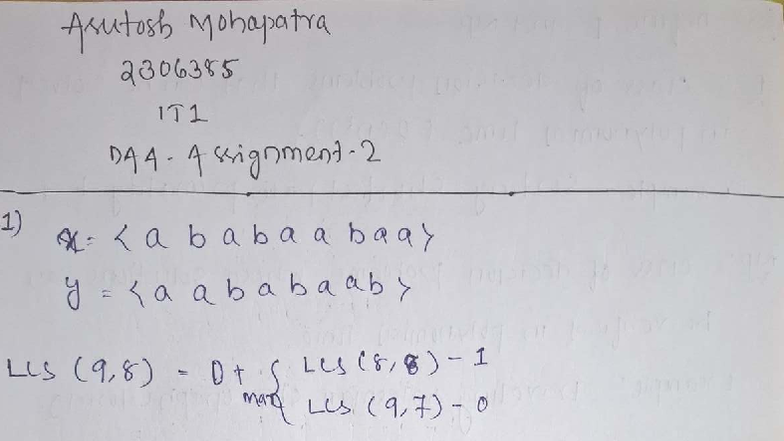 Asutosh Mohapatra
2306385
IT1
DAA - Assignment-2
1)
x = < a b a b a a b a a >
y = < a a b a b a a b >
LCS (9,8) = 0 + max { LCS (8,8) - 1
LCS (9,7) - 0